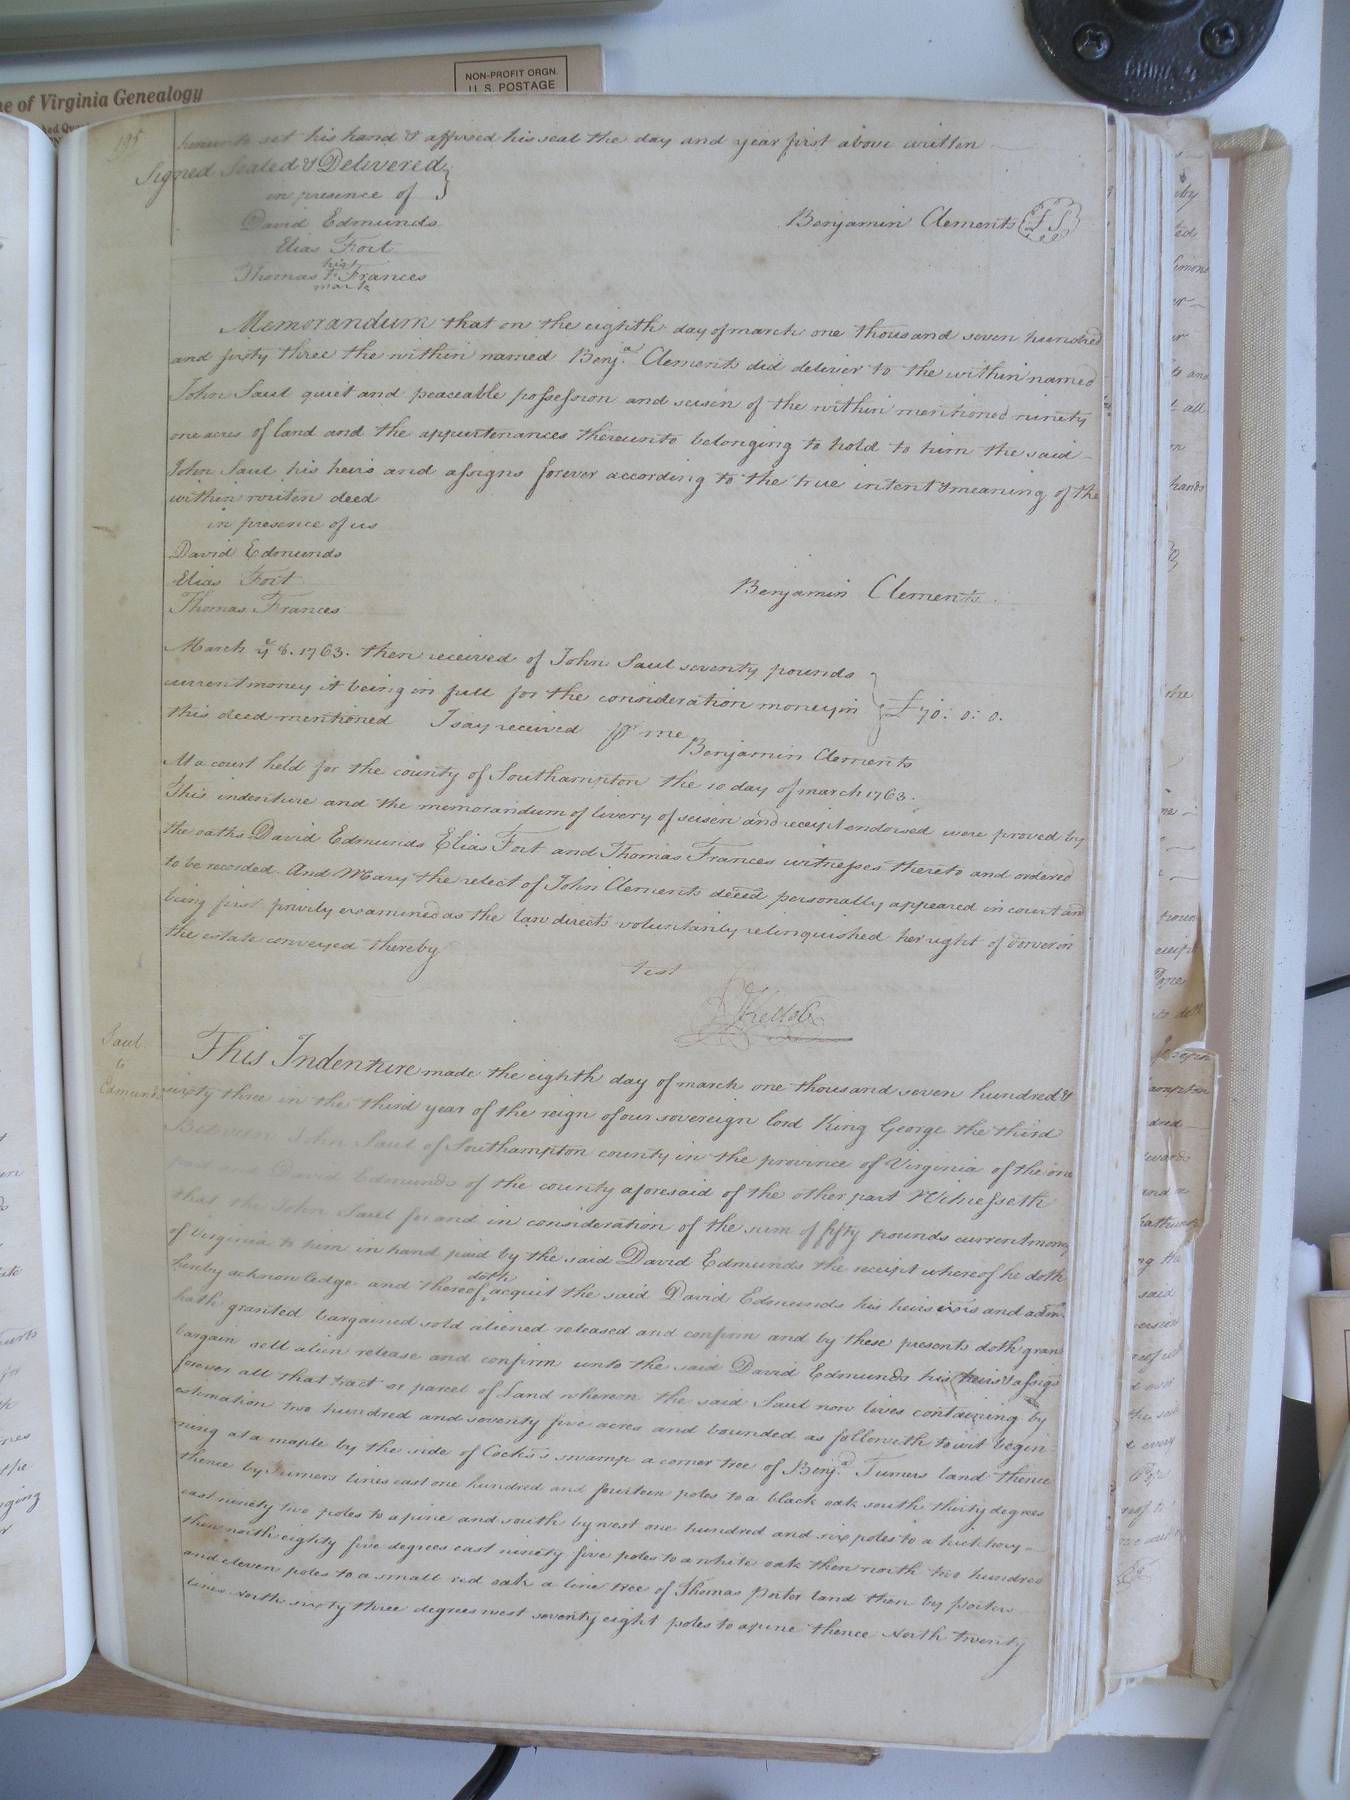 ne of Virginia Genealogy
NON-PROFIT ORGN.
U.S. POSTAGE
195
hereunto set his hand & affixed his seal the day and year first above written
Signed Sealed & Delivered
in presence of
David Edmunds
Elias Fort
his
Thomas F Frances
mark
Benjamin Clements LS
Memorandum that on the eighth day of march one thousand seven hundred
and sixty three the within named Benja. Clements did deliver to the within named
John Saul quiet and peaceable possession and seisin of the within mentioned ninety
one acres of land and the appurtenances thereunto belonging to hold to him the said
John Saul his heirs and assigns forever according to the true intent & meaning of the
within writen deed
in presence of us
David Edmunds
Elias Fort
Thomas Frances
Benjamin Clements
March ye 8. 1763. then received of John Saul seventy pounds
current money it being in full for the consideration money in
£70: 0: 0.
this deed mentioned I say received pr me
Benjamin Clements
At a court held for the county of Southampton the 10 day of march 1763.
This indenture and the memorandum of livery of seisen and receipt endorsed were proved by
the oaths David Edmunds Elias Fort and Thomas Frances witnesses thereto and ordered
to be recorded. And Mary the relect of John Clements deced personally appeared in court and
being first privily examined as the law directs voluntarily relinquished her right of dower in
the estate conveyed thereby
test
Saul
to
Edmunds
This Indenture made the eighth day of march one thousand seven hundred &
sixty three in the third year of the reign of our sovereign lord King George the third
Between John Saul of Southampton county in the province of Virginia of the one
part and David Edmunds of the county aforesaid of the other part Witnesseth
that the John Saul for and in consideration of the sum of fifty pounds current money
of Virginia to him in hand paid by the said David Edmunds the receipt whereof he doth
doth
hereby acknowledge and thereof acquit the said David Edmunds his heirs exrs and admrs
hath granted bargained sold aliened released and confirm and by these presents doth grant
bargain sell alien release and confirm unto the said David Edmunds his heirs & assigs
forever all that tract or parcel of land whereon the said Saul now lives containing by
estimation two hundred and seventy five acres and bounded as followith to wit begin-
ning at a maple by the side of Cocks's swamp a corner tree of Benja. Turners land thence
thence by Turners lines east one hundred and fourteen poles to a black oak south thirty degrees
east ninety two poles to a pine and south by west one hundred and six poles to a hickhory
then north eighty five degrees east ninety five poles to a white oak then north two hundred
and eleven poles to a small red oak a line tree of Thomas porter land then by porters
lines North sixty three degrees west seventy eight poles to a pine thence North twenty